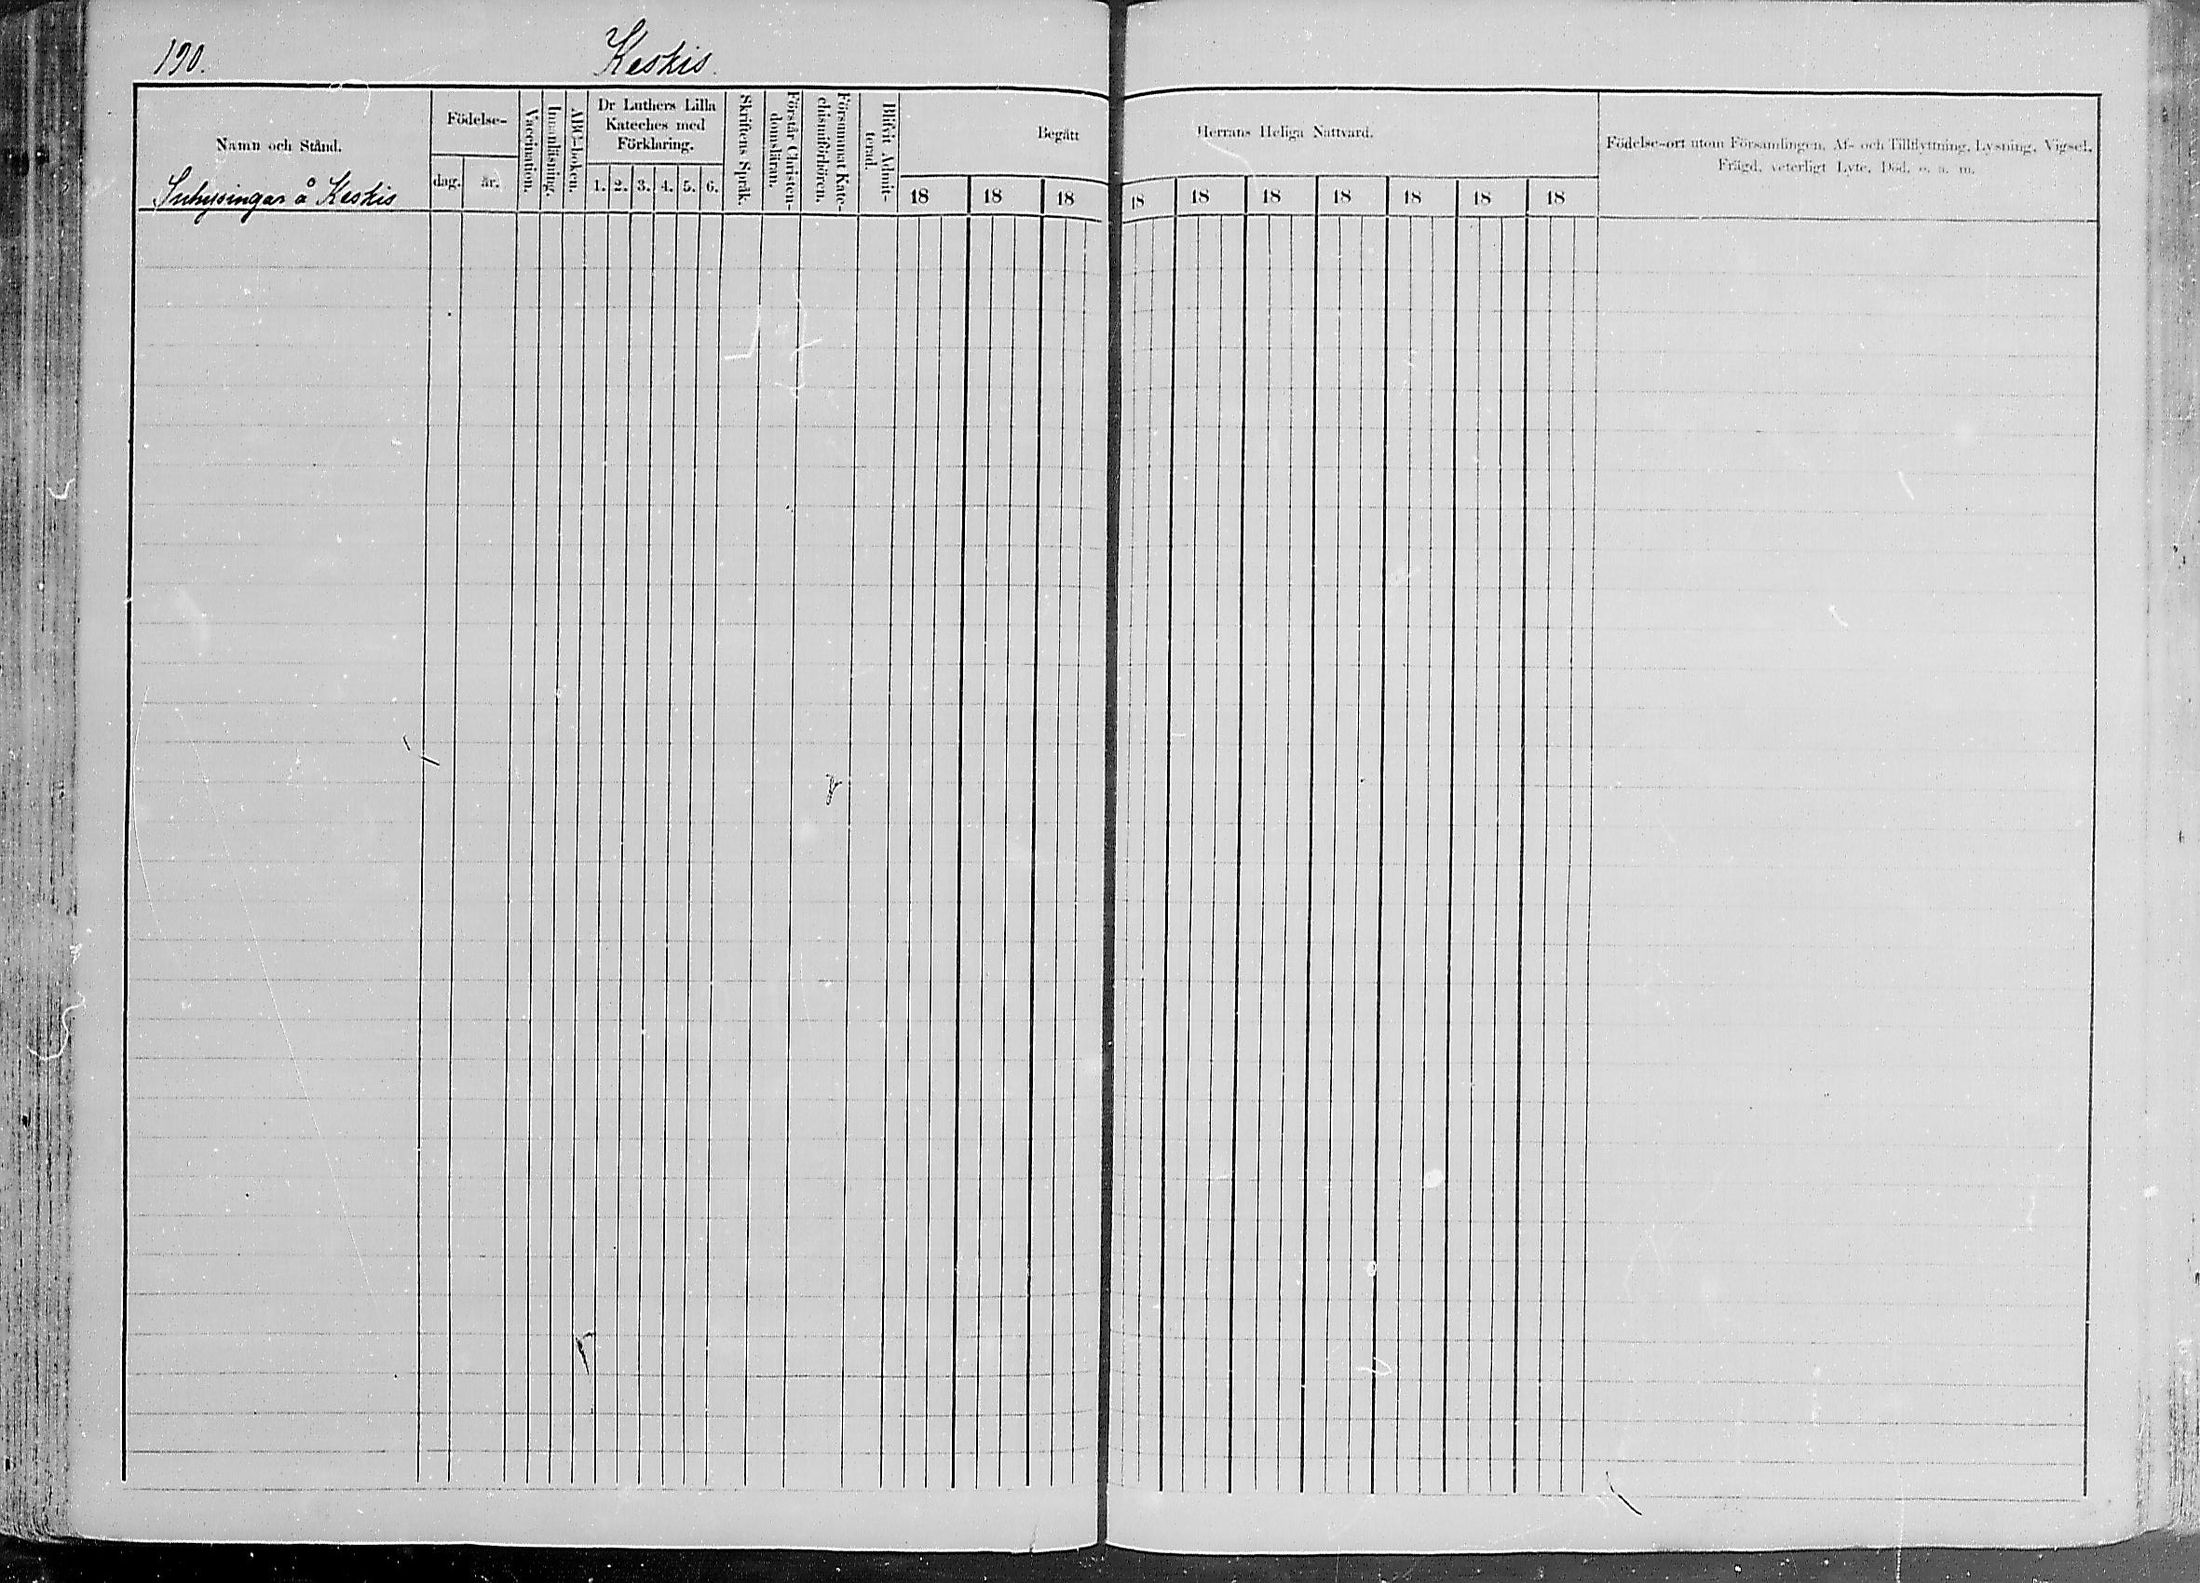 190. Keskis.
Namn och Stånd.
Inhysingar å Keskis
Födelse-
dag. år.
Vaccination.
Innanläsning.
ABC-boken.
Dr Luthers Lilla
Kateches med
Förklaring.
1. 2. 3. 4. 5. 6.
Skriftens Språk.
Förstår Christen-
domsläran.
Försummat Kate-
chismiförhören.
Blifvit Admit-
terad.
Begått Herrans Heliga Nattvard.
18 18 18 18 18 18 18 18 18 18
Födelse-ort utom Församlingen, Af- och Tillflyttning, Lysning, Vigsel,
Frägd, veterligt Lyte, Död, o. a. m.